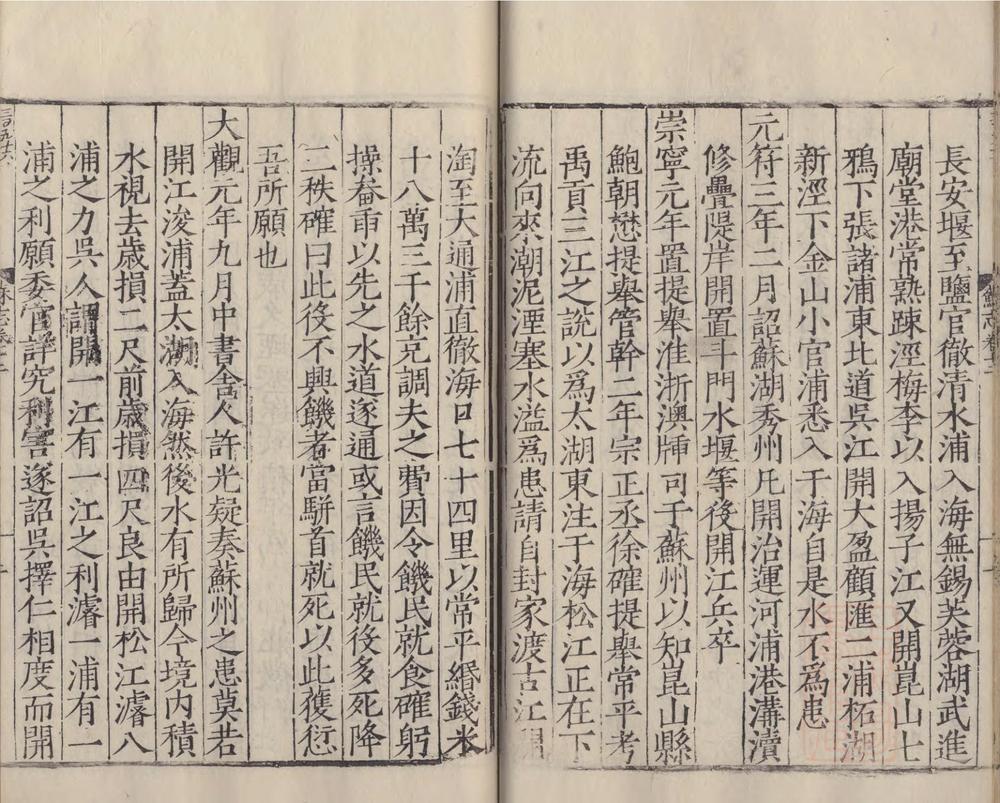 長安堰至鹽官徹清水浦入海無錫芙蓉湖武進
廟堂港常熟踈涇梅李以入揚子江又開崑山七
鴉下張諸浦東北道吳江開大盈顧匯二浦柘湖
新涇下金山小官浦悉入于海自是水不爲患
元符三年二月詔蘇湖秀州凡開治運河浦港溝瀆
修疊隄岸開置斗門水堰等後開江兵卒
崇寧元年置提舉淮浙澳牐司于蘇州以知崑山縣
鮑朝懋提舉管幹二年宗正丞徐確提舉常平考
禹貢三江之說以爲太湖東注于海松江正在下
流向來潮泥湮塞水溢爲患請自封家渡古江開
淘至大通浦直徹海口七十四里以常平緡錢米
十八萬三千餘充調夫之費因令饑民就食確躬
操畚臿以先之水道遂通或言饑民就役多死降
二秩確曰此役不興饑者當駢首就死以此獲愆
吾所願也
大觀元年九月中書舍人許光凝奏蘇州之患莫若
開江浚浦蓋太湖入海然後水有所歸今境内積
水視去歲損二尺前歲損四尺良由開松江濬八
浦之力吳人謂開一江有一江之利濬一浦有一
浦之利願委官詳究利害遂詔吳擇仁相度而開